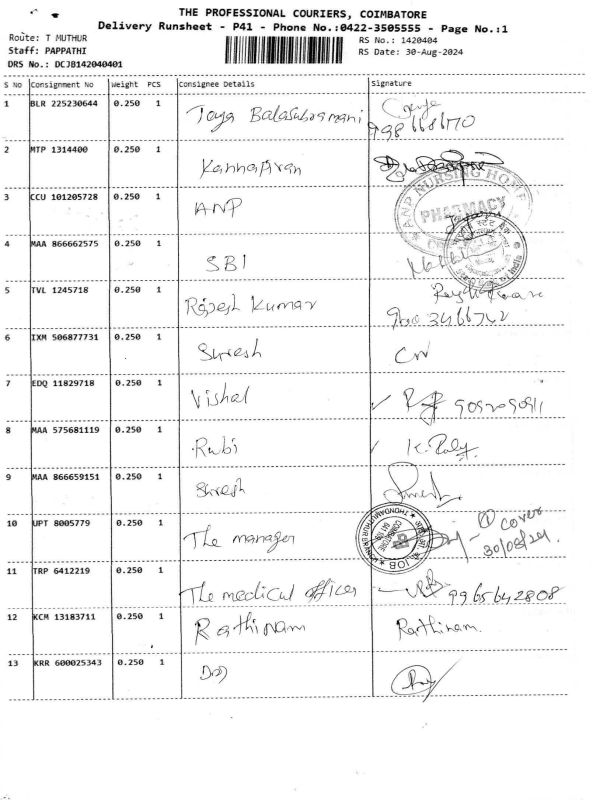 THE PROFESSIONAL COURIERS, COIMBATORE
Delivery Runsheet - P41 - Phone No.:0422-3505555 - Page No.:1
Route: T MUTHUR
RS No.: 1420404
Staff: PAPPATHI
RS Date: 30-Aug-2024
DRS No.: DCJB142040401
S No Consignment No Weight PCS Consignee Details Signature
1 BLR 225230644 0.250 1 Jaya Balasubramani
2 MTP 1314400 0.250 1 Kannapiran
3 CCU 101205728 0.250 1 ANP
ANP NURSING HOME
PHARMACY
4 MAA 866662575 0.250 1 SBI
5 TVL 1245718 0.250 1 Rajesh Kumar
6 IXM 506877731 0.250 1 Suresh
7 EDQ 11829718 0.250 1 Vishal
8 MAA 575681119 0.250 1 Rubi
9 MAA 866659151 0.250 1 Suresh
10 UPT 8005779 0.250 1 The manager
1 cover
30/08/24
11 TRP 6412219 0.250 1 The medical officer 9965642808
12 KCM 13183711 0.250 1 Rathinam Rathinam
13 KRR 600025343 0.250 1